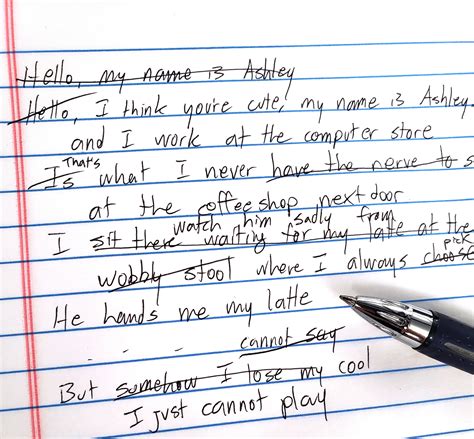 Hello, my name is Ashley
Hello, I think you're cute, my name is Ashley
and I work at the computer store
That's
Is what I never have the nerve to s
at the coffee shop next door
watch him sadly from
I sit there waiting for my latte at the
pick
wobbly stool where I always choose
He hands me my latte
cannot say
But somehow I lose my cool
I just cannot play